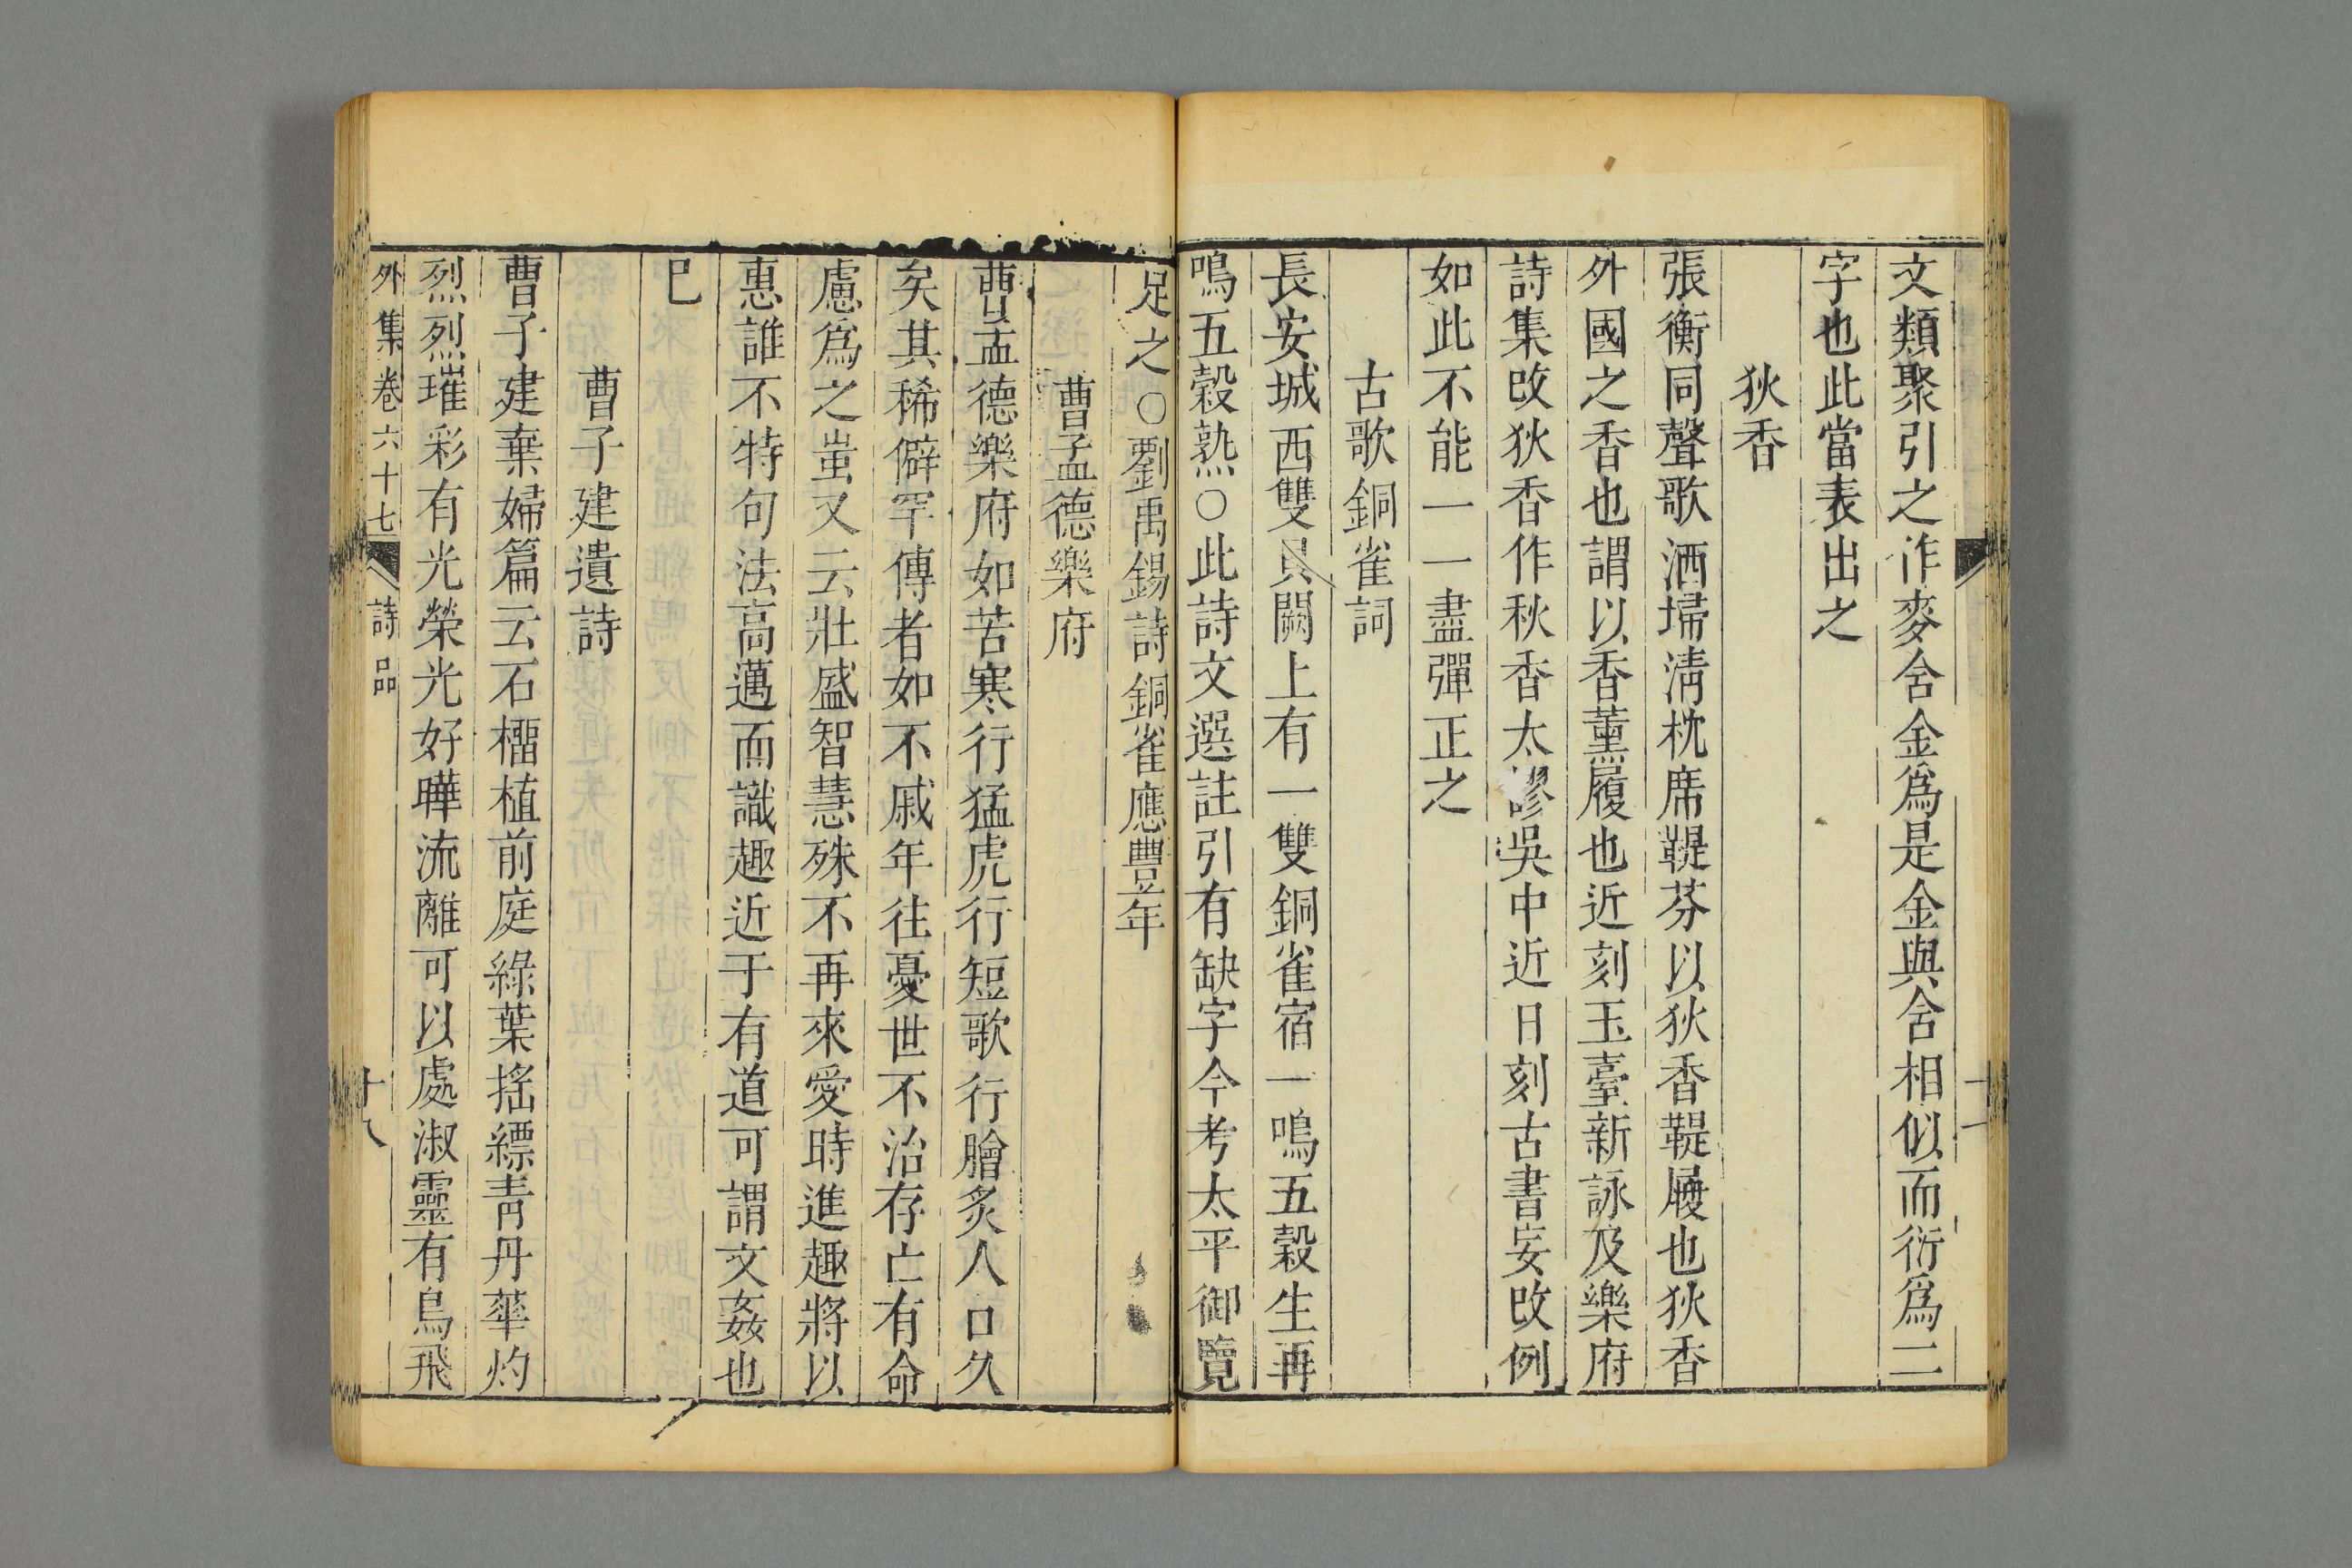 文類聚引之作麥舍金爲是金與舍相似而衍爲二
字也此當表出之
狄香
張衡同聲歌洒埽清枕席鞮芬以狄香鞮履也狄香
外國之香也謂以香薰履也近刻玉臺新詠及樂府
詩集改狄香作秋香太謬吳中近日刻古書妄改例
如此不能一一盡彈正之
古歌銅雀詞
長安城西雙員闕上有一雙銅雀宿一鳴五穀生再
鳴五穀熟○此詩文選註引有缺字今考太平御覽
足之○劉禹錫詩銅雀應豐年
曹孟德樂府
曹孟德樂府如苦寒行猛虎行短歌行膾炙人口久
矣其稀僻罕傳者如不戚年往憂世不治存亡有命
慮爲之蚩又云壯盛智慧殊不再來愛時進趣將以
惠誰不特句法高邁而識趣近于有道可謂文姦也
巳
曹子建遺詩
曹子建棄婦篇云石橊植前庭綠葉搖縹青丹華灼
烈烈璀彩有光榮光好曄流離可以處淑靈有鳥飛
外集卷六十七
詩品
十八